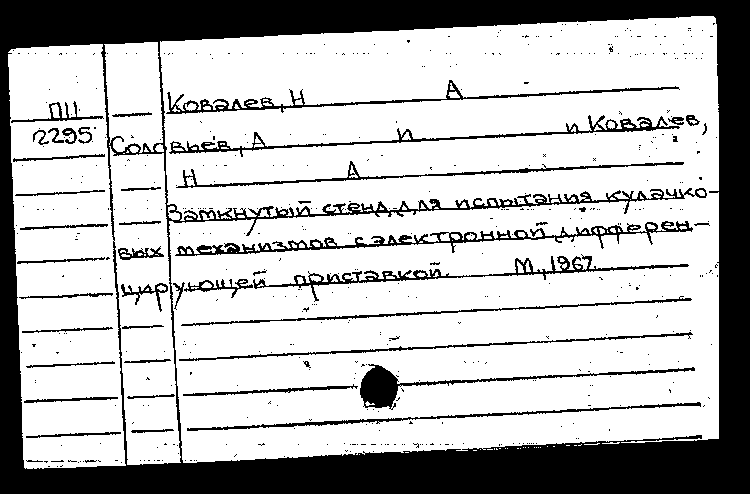 П11 Ковалев, Н А
2295 Соловьев, А П и Ковалев,
Н А
Замкнутый стенд для испытания кулачко-
вых механизмов с электронной дифферен-
цирующей приставкой. М., 1967.